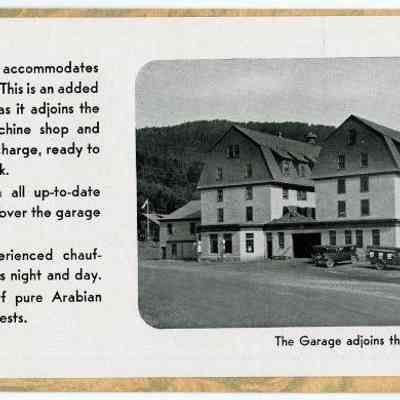 accommodates
This is an added
as it adjoins the
chine shop and
charge, ready to
k.
all up-to-date
over the garage
erienced chauf-
s night and day.
f pure Arabian
ests.
The Garage adjoins th